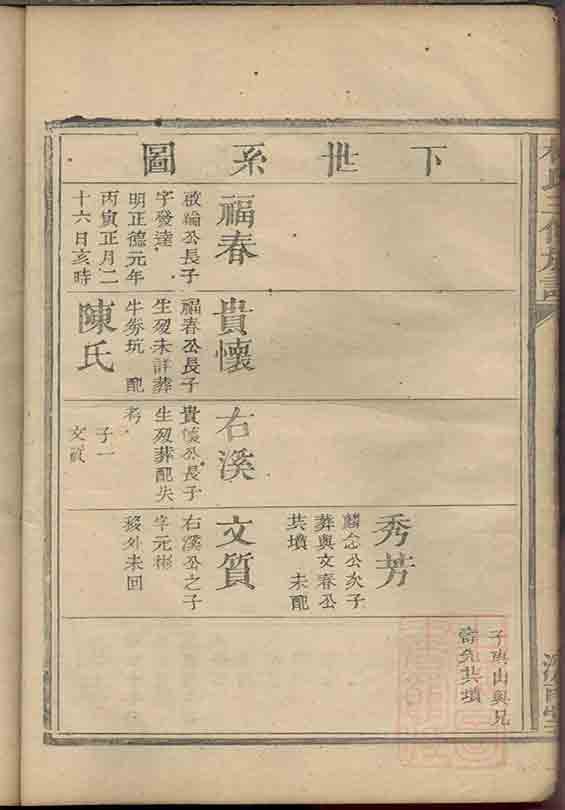 下世系圖
子輿山與兄
裔先共墳
秀芳
麟念公次子
葬與文春公
共墳 未配
福春
啟綸公長子
字發達
明正德元年
丙寅正月二
十六日亥時
貴懷
福春公長子
生歿未詳葬
牛旁坑 配
陳氏
右溪
貴懷公長子
生歿葬配失
考
子一
文質
文質
右溪公之子
字元彬
移外未回
氏三修族譜